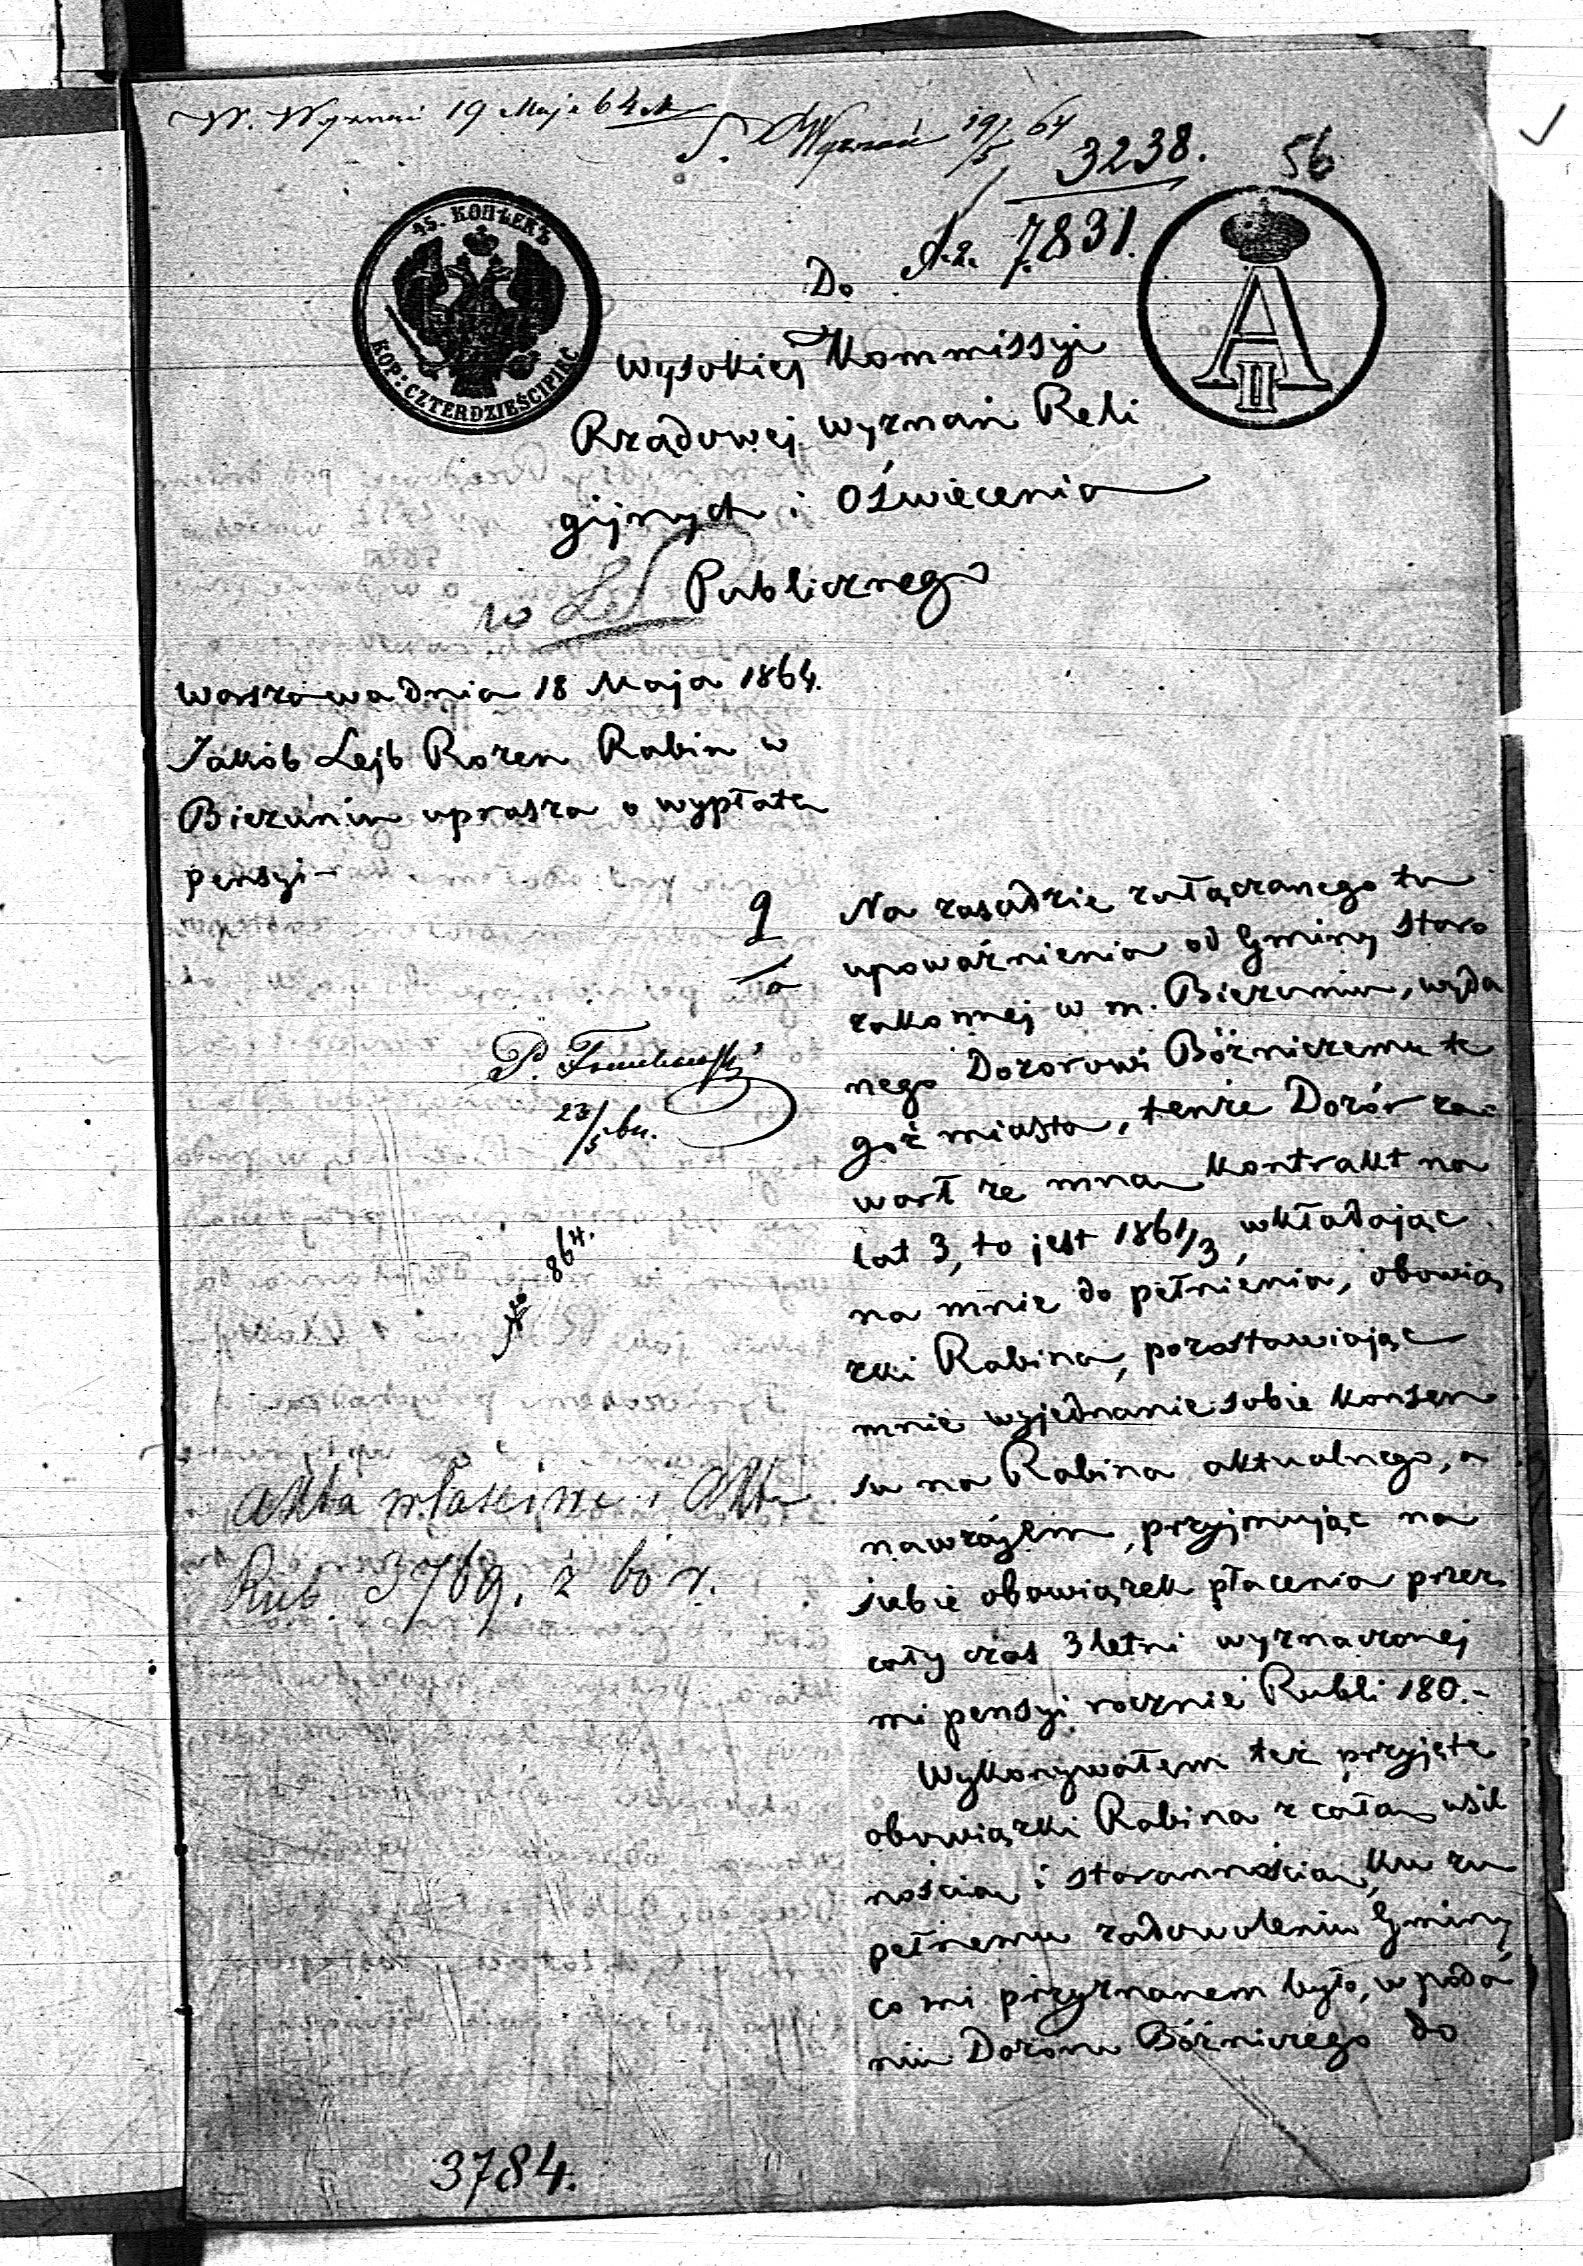 W. Wyznań 19 Maja 64
S. Wyznań 19/5 64
3238.
56
7831.
45. КОПѢЕКЪ
KOP: CZTERDZIEŚCIPIĘĆ
A II
Do
Wysokiej Kommissyi
Rządowej Wyznań Reli
gijnych i Oświecenia
Publicznego
Warszawa dnia 18 Maja 1864.
Jakób Lejb Rozen Rabin w
Bieżuniu uprasza o wypłatę
pensyi
Na zasadzie załączonego tu
upoważnienia od Gminy Staro
zakonnej w m. Bieżuniu, wyda
nego Dozorowi Bóżniczemu te
goż miasta, tenże Dozór za-
warł ze mną Kontrakt na
lat 3, to jest 1861/3, wkładając
na mnie do pełnienia, obowią
zki Rabina, pozostawiając
mnie wyjednanie sobie Konsen
su na Rabina aktualnego, a
nawzajem, przyjmując na
siebie obowiązek płacenia przez
cały czas 3 letni wyznaczonej
mi pensyi rocznie Rubli 180.-
Wykonywałem też przyjęte
obowiązki Rabina z całą usil
nością i starannością, ku zu
pełnemu zadowoleniu Gminy
co mi przyznanem było, w poda
niu Dozoru Bóżniczego do
P.
23/5
864.
Akta właściwe i Akta
Rub. 3769. z 60 r.
3784.